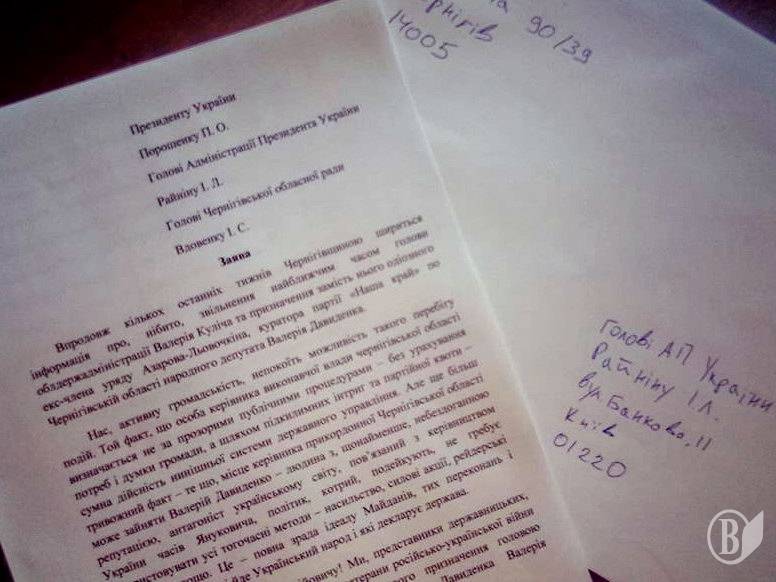 90/39
14005
Президенту України
Порошенку П. О.
Голові Адміністрації Президента України
Райніну І. Л.
Голові Чернігівської обласної ради
Вдовенку І. С.
Заява
Впродовж кількох останніх тижнів Чернігівщиною шириться
інформація про, нібито, звільнення найближчим часом голови
облдержадміністрації Валерія Куліча та призначення замість нього одіозного
екс-члена уряду Азарова-Льовочкіна, куратора партії «Наша край» по
Чернігівській області народного депутата Валерія Давиденка.
Нас, активну громадськість, непокоїть можливість такого перебігу
подій. Той факт, що особа керівника виконавчої влади чернігівської області
визначається не за прозорими публічними процедурами – без урахування
потреб і думки громади, а шляхом підкилимних інтриг та партійної квоти –
сумна дійсність нинішньої системи державного управління. Але ще більш
тривожний факт – те що, місце керівника прикордонної Чернігівської області
може зайняти Валерій Давиденко – людина з, щонайменше, небездоганною
репутацією, антагоніст українському світу, пов'язаний з керівництвом
України часів Януковича, політик, котрий, подейкують, не гребує
використовувати усі тогочасні методи – насильство, силові акції, рейдерські
тощо. Це – повна зрада ідеалу Майданів, тих переконань і
йде Український народ і які декларує держава.
Ми, представники державницьких,
ветерани російсько-української війни
призначення головою
Давиденка Валерія
Голові АП України
Райніну І Л.
вул Банкова, 11
Київ
01220
В